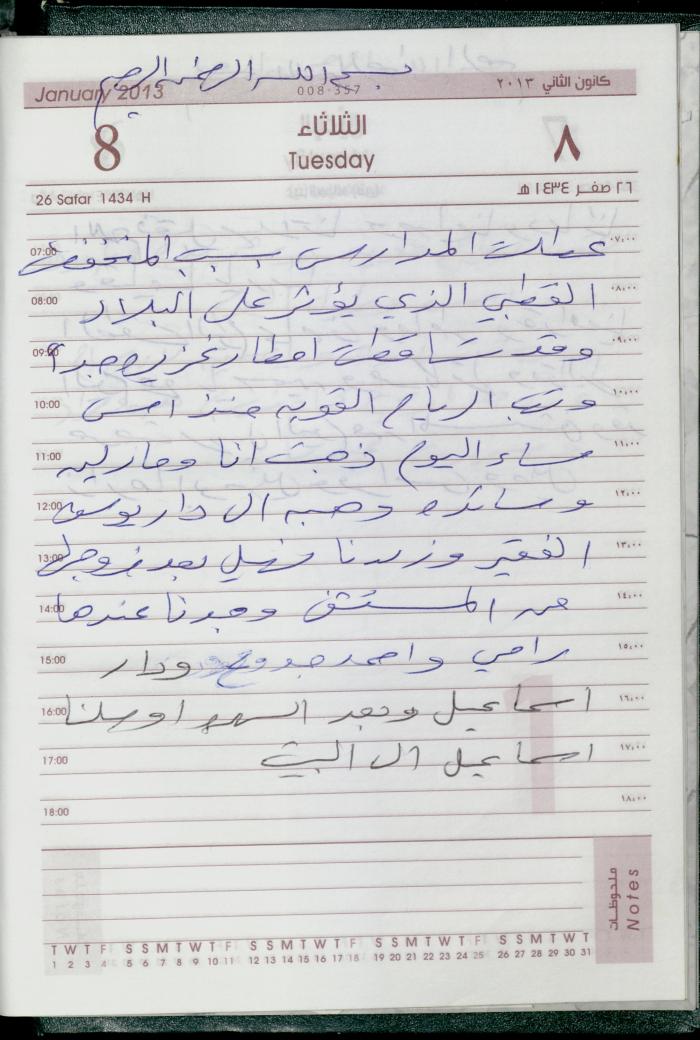 بسم الله الرحمن الرحيم
January 2013 008-357 كانون الثاني ٢٠١٣
8 الثلاثاء ٨
Tuesday
26 Safar 1434 H ٢٦ صفر ١٤٣٤ هـ
07:00 عطلت المدارس بسبب المنخفض ٠٧:٠٠
08:00 القطبي الذي يؤثر على البلاد ٠٨:٠٠
09:00 وقد تساقطت امطار غزيره جدا ٠٩:٠٠
10:00 الرياح القويه منذ امس ١٠:٠٠
11:00 مساء اليوم ذهبت انا وماريه ١١:٠٠
12:00 وسائده وهبه ال دار يوسف ١٢:٠٠
13:00 الفقير وزرنا بعد خروجها ١٣:٠٠
14:00 من المستشفى وجدنا عندها ١٤:٠٠
15:00 رامي واحمد ودار ١٥:٠٠
16:00 اسماعيل وبعد السهره اوصلنا ١٦:٠٠
17:00 اسماعيل ال البيت ١٧:٠٠
18:00 ١٨:٠٠
ملحوظات Notes
T W T F S S M T W T F S S M T W T F S S M T W T F S S M T W T
1 2 3 4 5 6 7 8 9 10 11 12 13 14 15 16 17 18 19 20 21 22 23 24 25 26 27 28 29 30 31